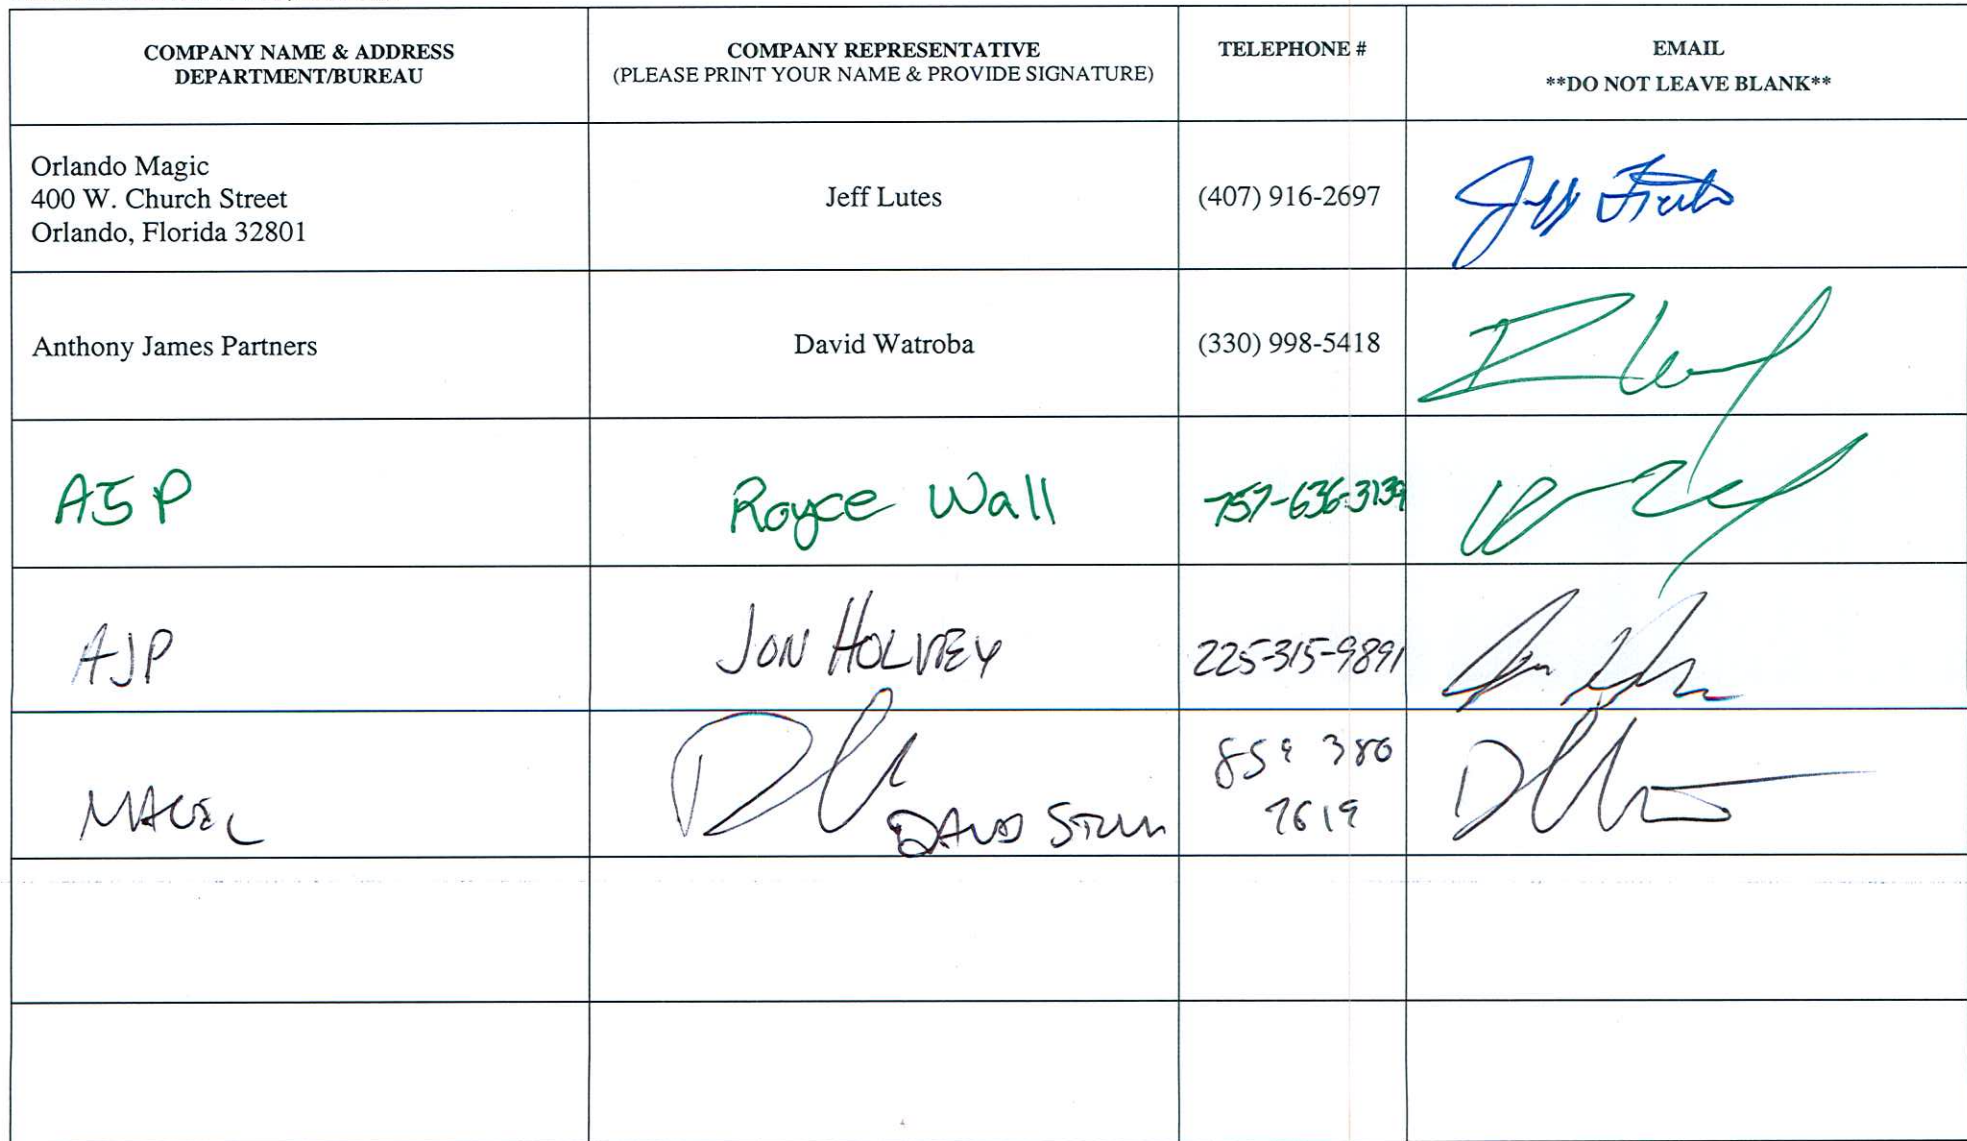 COMPANY NAME & ADDRESS
DEPARTMENT/BUREAU
COMPANY REPRESENTATIVE
(PLEASE PRINT YOUR NAME & PROVIDE SIGNATURE)
TELEPHONE #
EMAIL
**DO NOT LEAVE BLANK**
Orlando Magic
400 W. Church Street
Orlando, Florida 32801
Jeff Lutes
(407) 916-2697
Anthony James Partners
David Watroba
(330) 998-5418
AJP
Royce Wall
757-636-3139
AJP
JON HOLVEY
225-315-9891
DAVID
859 380
7619